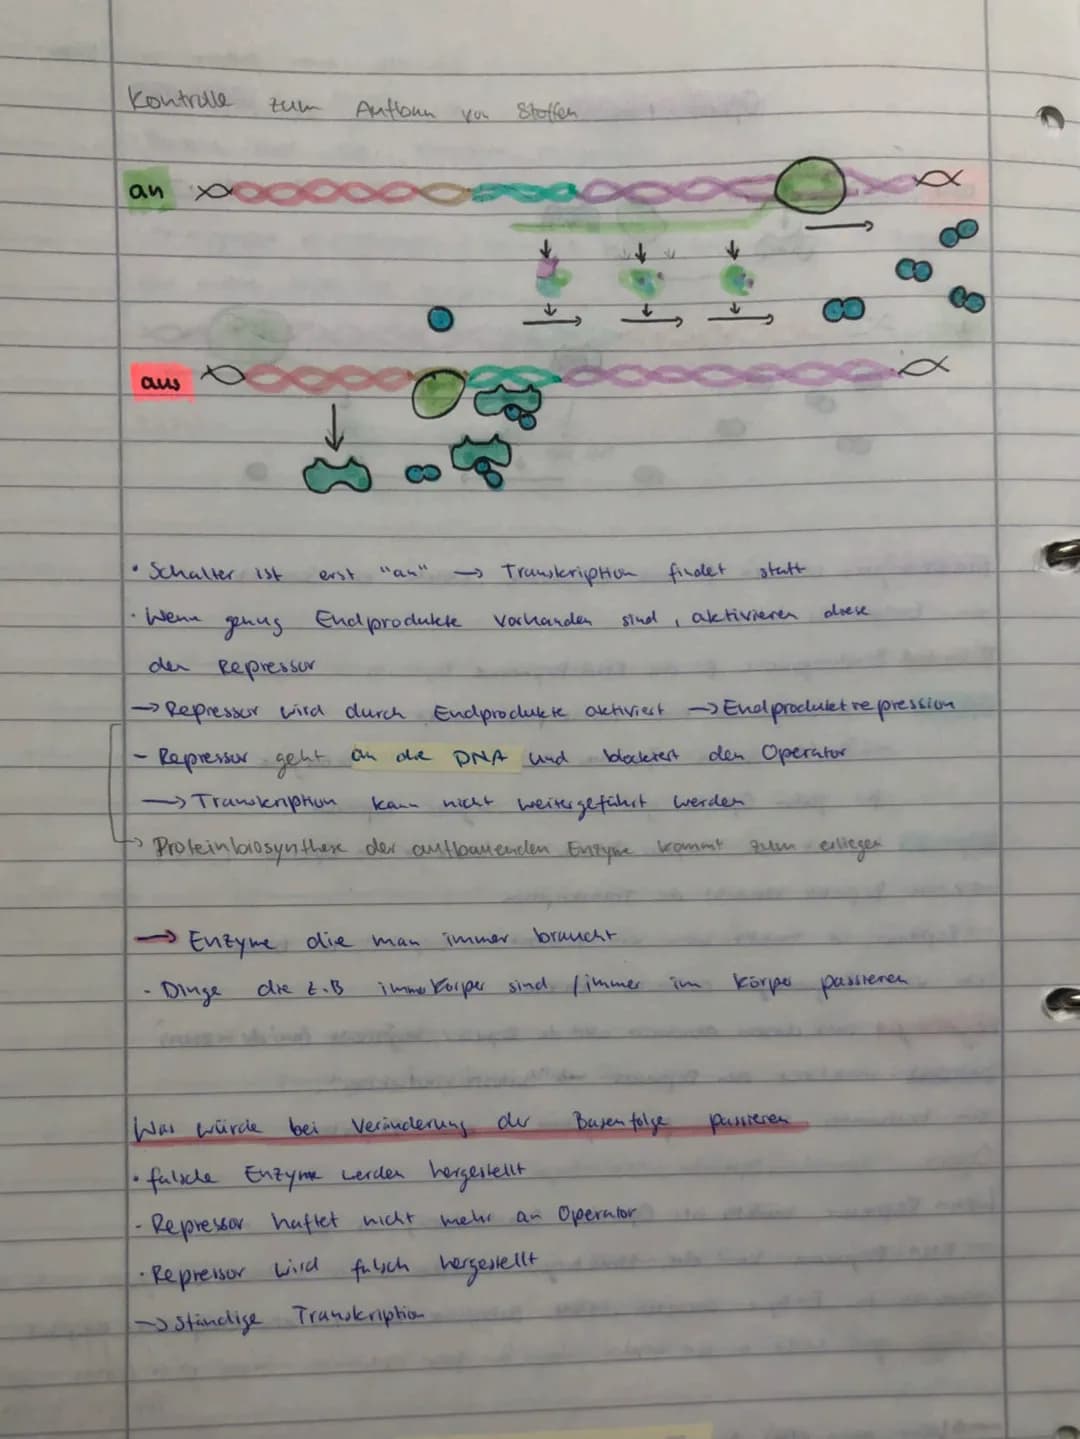 Kontrolle zum Aufbau von Stoffen
an
aus
• Schalter ist erst "an" → Transkription findet statt
• Wenn genug Endprodukte vorhanden sind, aktivieren diese
den Repressor
→ Repressor wird durch Endprodukte aktiviert → Endproduktrepression
- Repressor geht an die DNA und blockiert den Operator
→ Transkription kann nicht weitergeführt werden
→ Proteinbiosynthese der aufbauenden Enzyme kommt zum erliegen
→ Enzyme die man immer braucht
- Dinge die z.B Körper sind / immer im Körper passieren
Was würde bei Veränderung der Basenfolge passieren
• falsche Enzyme werden hergestellt
- Repressor haftet nicht mehr an Operator
• Repressor wird falsch hergestellt
→ ständige Transkription